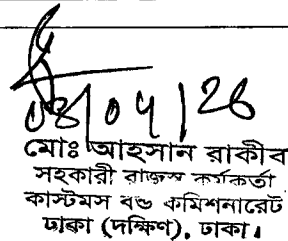 08/04/26
মোঃ আহসান রাকীব
সহকারী রাজস্ব কর্মকর্তা
কাস্টমস বন্ড কমিশনারেট
ঢাকা (দক্ষিণ), ঢাকা।